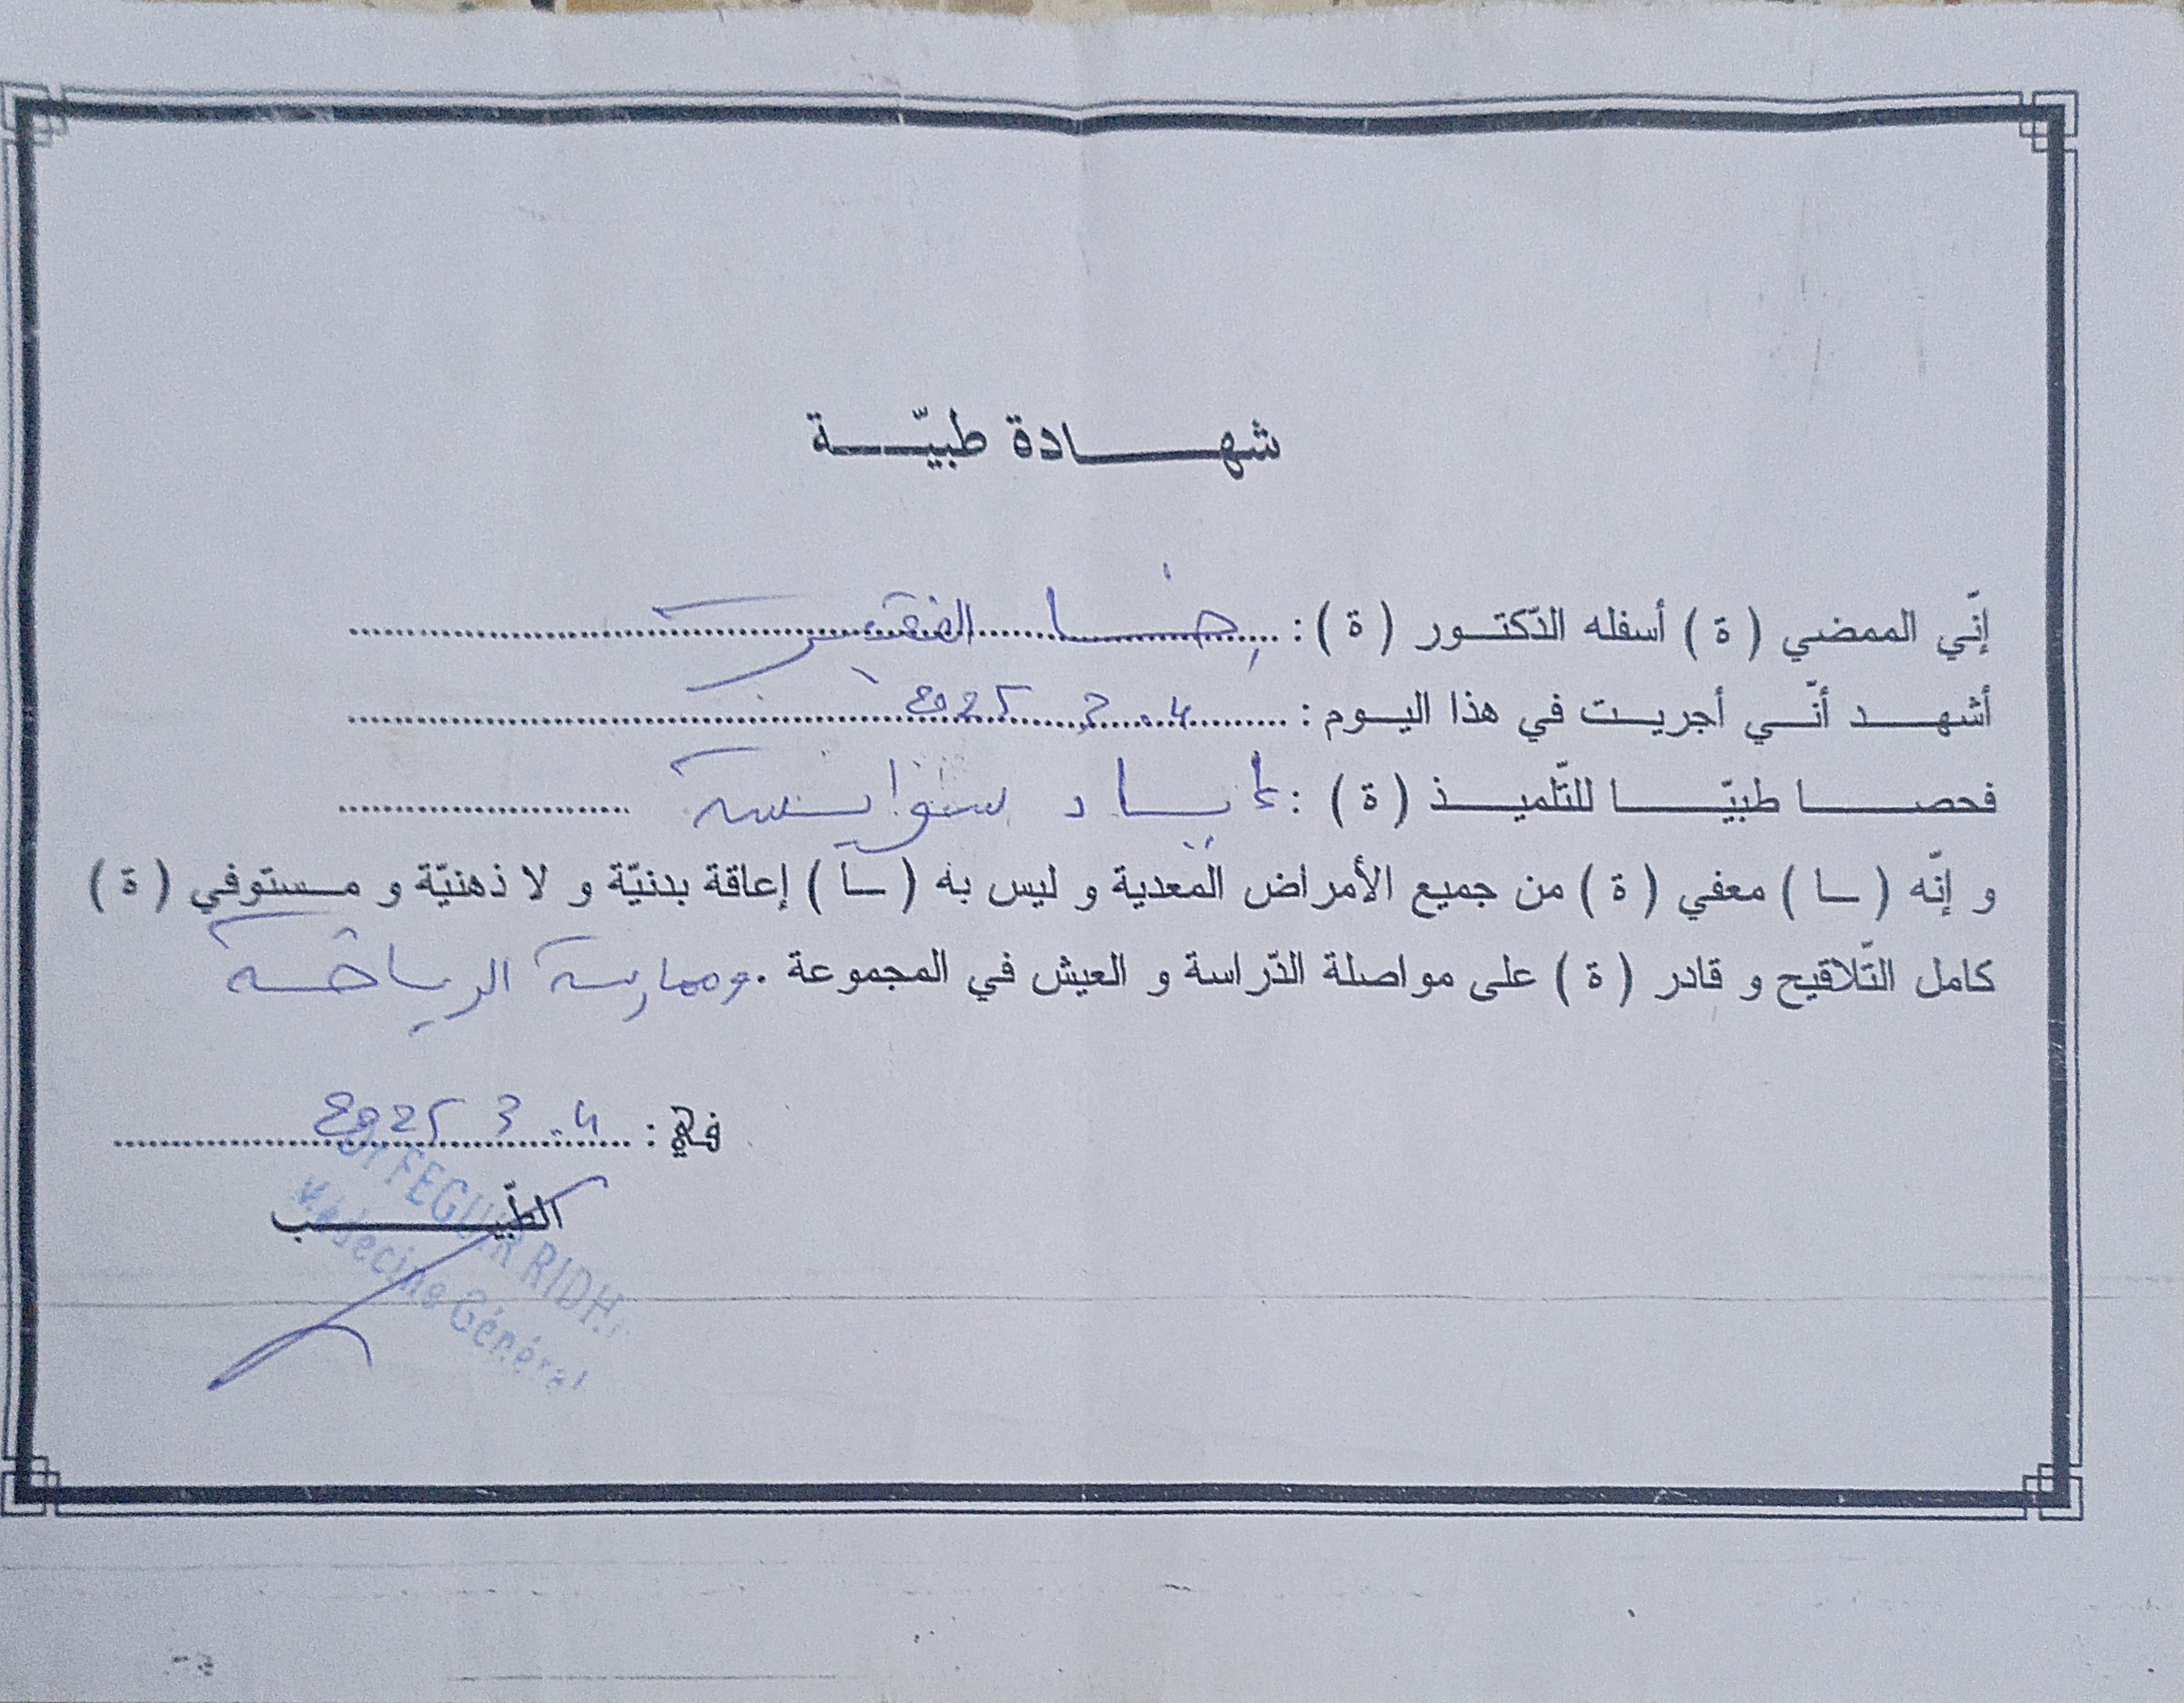 شهادة طبيّة
إنّي الممضي ( ة ) أسفله الدّكتور ( ة ) : رضا الفقير
أشهد أنّي أجريت في هذا اليوم : 4 . 3 2025
فحصا طبيّا للتّلميذ ( ة ) : إياد سوايسية
و إنّه ( ـا ) معفي ( ة ) من جميع الأمراض المعدية و ليس به ( ـا ) إعاقة بدنيّة و لا ذهنيّة و مستوفي ( ة )
كامل التّلاقيح و قادر ( ة ) على مواصلة الدّراسة و العيش في المجموعة . وممارسة الرياضة
في : 4 . 3 2025
الطّبيب
Dr FEGUIR RIDH
Médecine Général